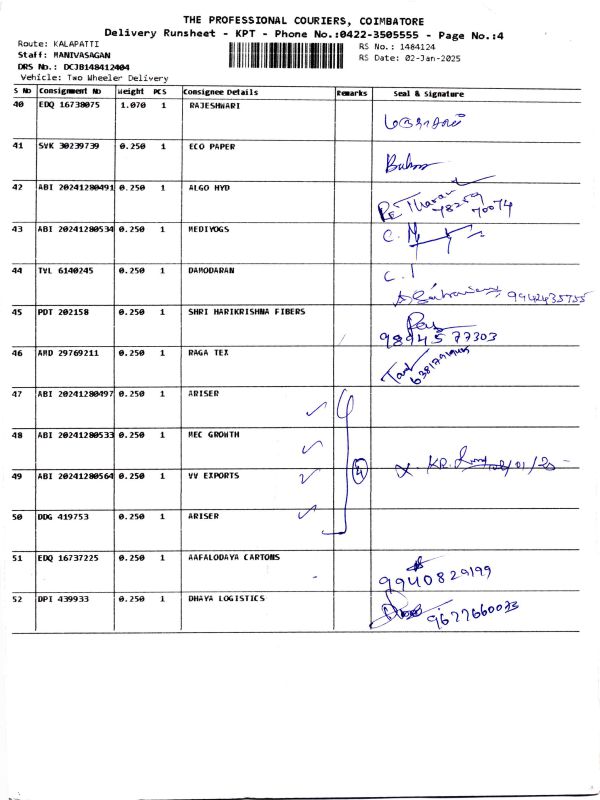 THE PROFESSIONAL COURIERS, COIMBATORE
Delivery Runsheet - KPT - Phone No.:0422-3505555 - Page No.:4
Route: KALAPATTI RS No.: 1484124
Staff: MANIVASAGAN RS Date: 02-Jan-2025
DRS No.: DCJB148412404
Vehicle: Two Wheeler Delivery
S No Consignment No Weight PCS Consignee Details Remarks Seal & Signature
40 EDQ 16738075 1.070 1 RAJESHWARI
41 SVK 30239739 0.250 1 ECO PAPER
42 ABI 20241280491 0.250 1 ALGO HYD
78259
70074
43 ABI 20241280534 0.250 1 MEDIYOGS
44 TVL 6140245 0.250 1 DAMODARAN
9942435755
45 PDT 202158 0.250 1 SHRI HARIKRISHNA FIBERS
9894577303
46 AMD 29769211 0.250 1 RAGA TEX
47 ABI 20241280497 0.250 1 ARISER
48 ABI 20241280533 0.250 1 MEC GROWTH
49 ABI 20241280564 0.250 1 VV EXPORTS 4
50 DDG 419753 0.250 1 ARISER
51 EDQ 16737225 0.250 1 AAFALODAYA CARTONS
9940829199
52 DPI 439933 0.250 1 DHAYA LOGISTICS
9677660073